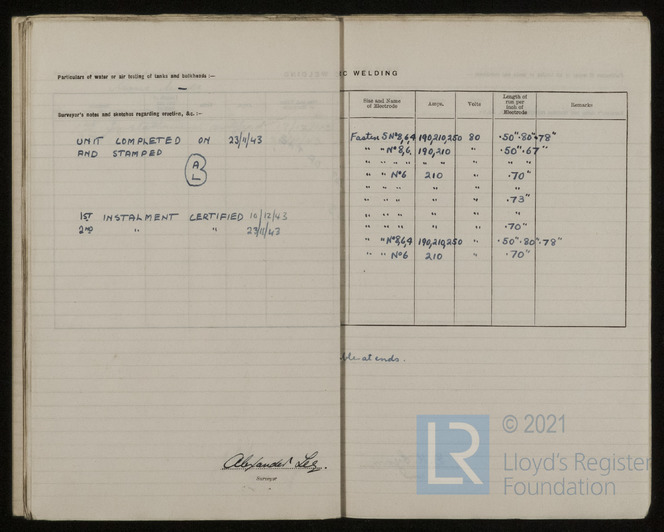 Particulars of water or air testing of tanks and bulkheads :—
—
Surveyor's notes and sketches regarding erection, &c. :—
UNIT COMPLETED ON 23/11/43
AND STAMPED
A
L
1ST INSTALMENT CERTIFIED 10/12/43
2ND " " 23/11/43
Alexander Lee.
Surveyor
IC WELDING
Size and Name of Electrode Amps. Volts Length of run per inch of Electrode Remarks
Fastex 5 Nº8,6,4 190,210,250 80 .50".80".78"
" " Nº8,6. 190,210 " .50".67"
" " " " " " " " "
" " Nº6 210 " .70"
" " " " " "
" " " " " .73"
" " " " " "
" " " " " .70"
" " Nº8,6,4 190,210,250 " .50".80".78"
" " Nº6 210 " .70"
ble at ends.
LR
© 2021
Lloyd's Register
Foundation